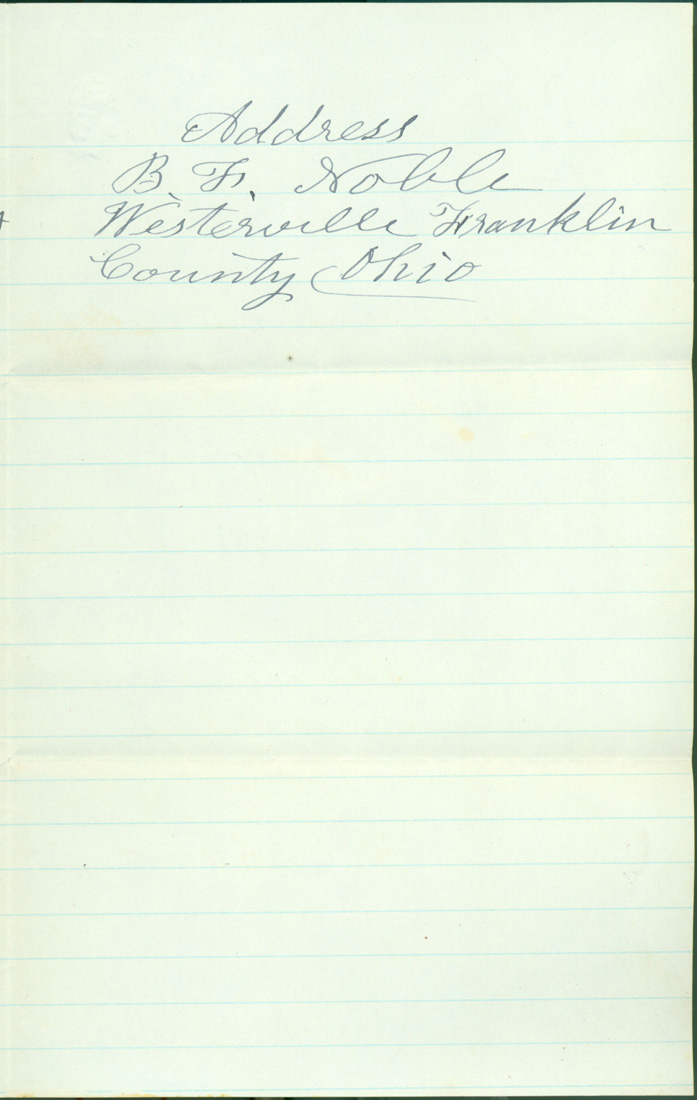 Address
B. F. Noble
Westerville Franklin
County Ohio